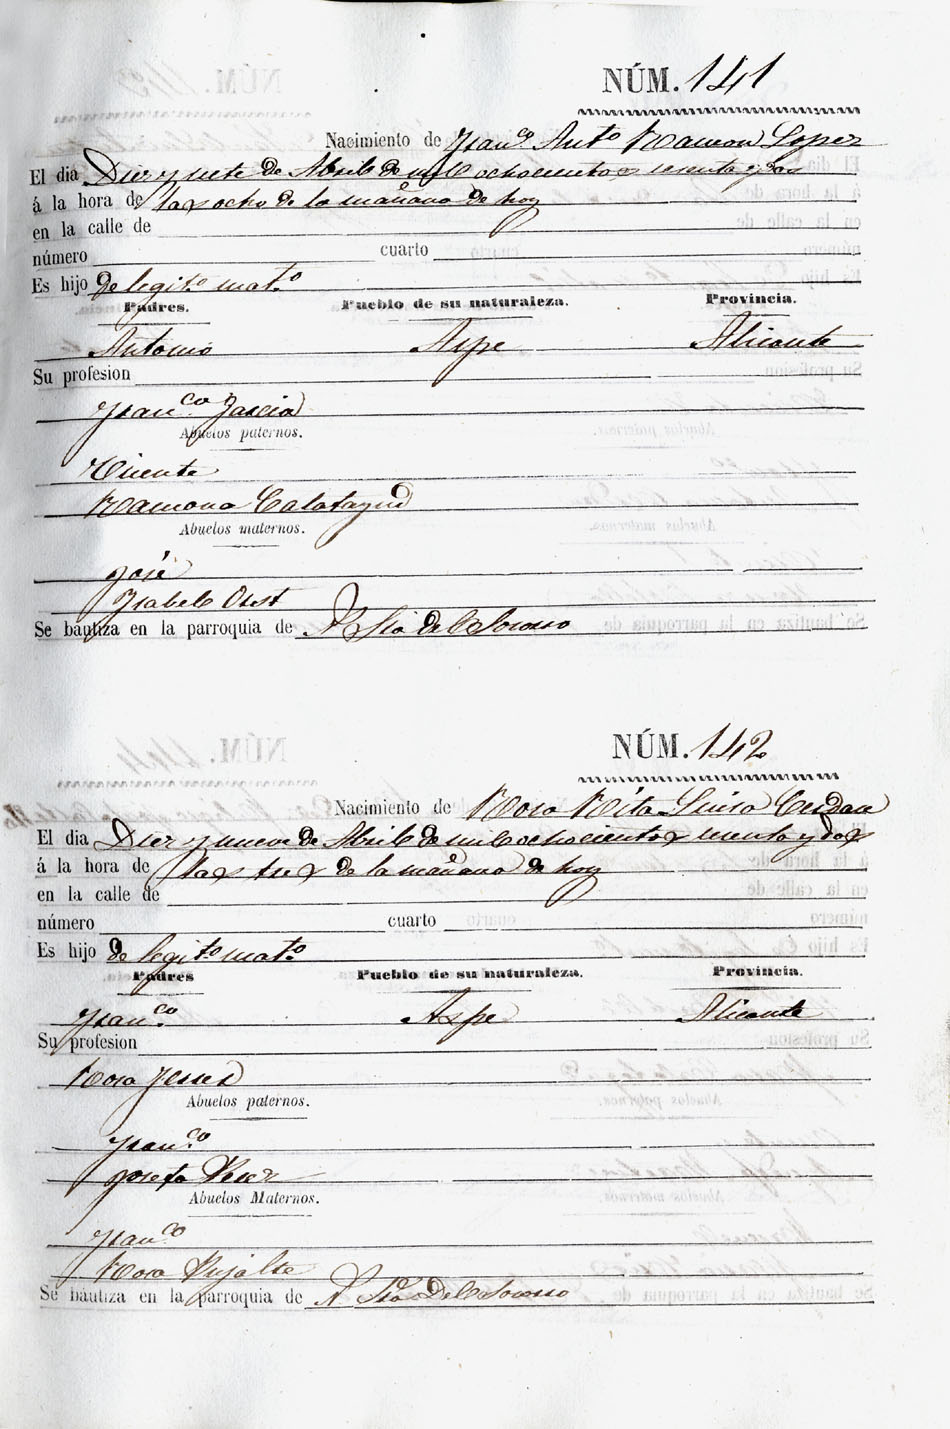 NÚM. 141
Nacimiento de Fran.co Ant.o Ramon Lopez
El dia Diez y siete de Abril de mil ochocientos sesenta y dos
á la hora de las ocho de la mañana de hoy
en la calle de
número cuarto
Es hijo de legit.o mat.o
Padres. Pueblo de su naturaleza. Provincia.
Antonio Aspe Alicante
Su profesion
Fran.ca Garcia
Abuelos paternos.
Vicente
Ramona Calatayud
Abuelos maternos.
José
Ysabel
Se bautiza en la parroquia de N. Sra del Socorro
NÚM. 142
Nacimiento de Rosa Rita Luisa Cerdan
El dia Diez y nueve de Abril de mil ochocientos sesenta y dos
á la hora de las tres de la mañana de hoy
en la calle de
número cuarto
Es hijo de legit.o mat.o
Padres Pueblo de su naturaleza. Provincia.
Fran.co Aspe Alicante
Su profesion
Rosa
Abuelos paternos.
Fran.co
Josefa Perez
Abuelos Maternos.
Fran.co
Rosa Pujalte
Se bautiza en la parroquia de N. Sra Del Socorro